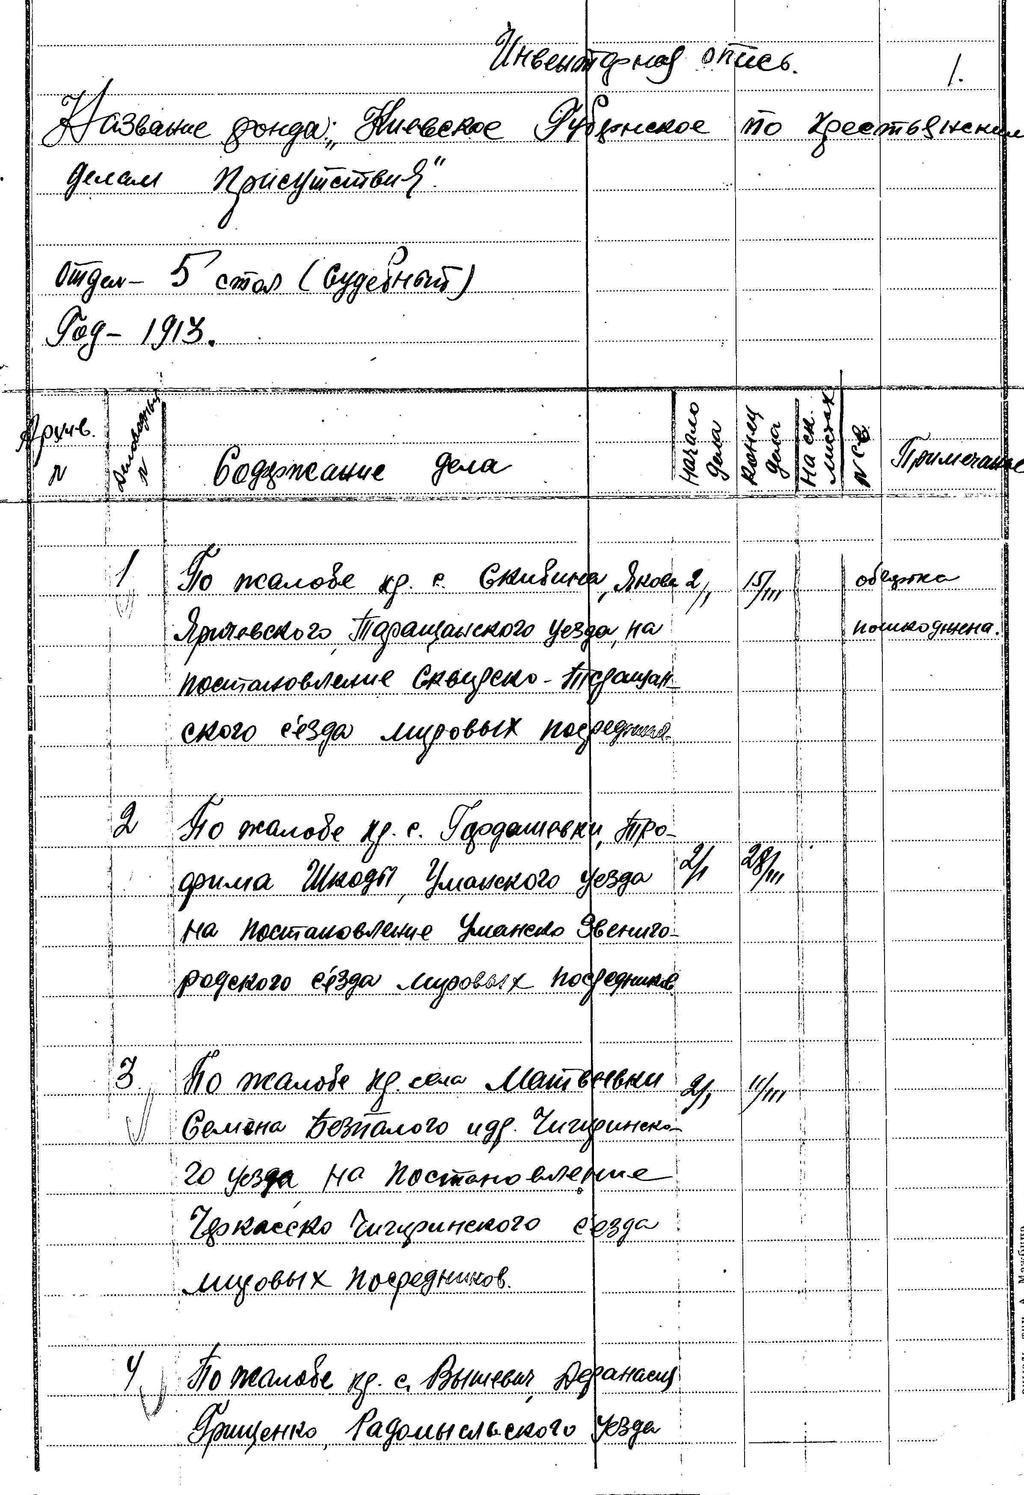 Инвентарная опись.
1.
Название фонда: „Киевское Губернское по крестьянским
делам Присутствия“.
Отдел – 5 стол (Судебный)
Год – 1913.
Архив. N
Деловодный N
Содержание дела
Начало дела
Конец дела
На ск. листах
N св.
Примечание
1 По жалобе кр. с. Скибина, Якова 2/I 15/III обгортка
Яричевского, Таращанского уезда, на пошкоджена.
постановление Сквирско-Таращан-
ского с'езда мировых посредников
2 По жалобе кр. с. Гордашевки, Тро-
фима Шкоды, Уманского уезда 2/I 28/III
на постановление Уманско Звениго-
родского с'езда мировых посредников
3 По жалобе кр. села Матвеевки 2/I 11/III
Семена Безпалого и др. Чигиринско-
го уезда на постановление
Черкасско Чигиринского с'езда
мировых посредников.
4 По жалобе кр. с. Вышевич, Афанасия
Грищенко, Радомысльского уезда